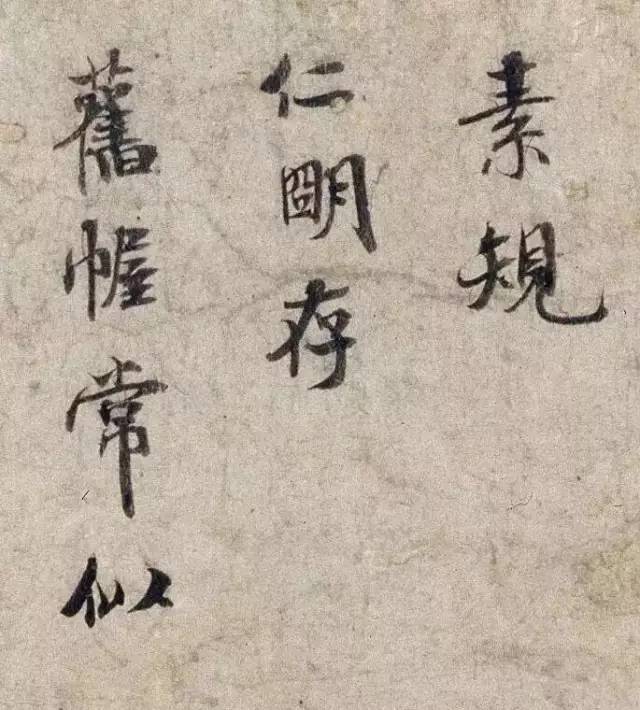 素規
仁明存
舊幄常似